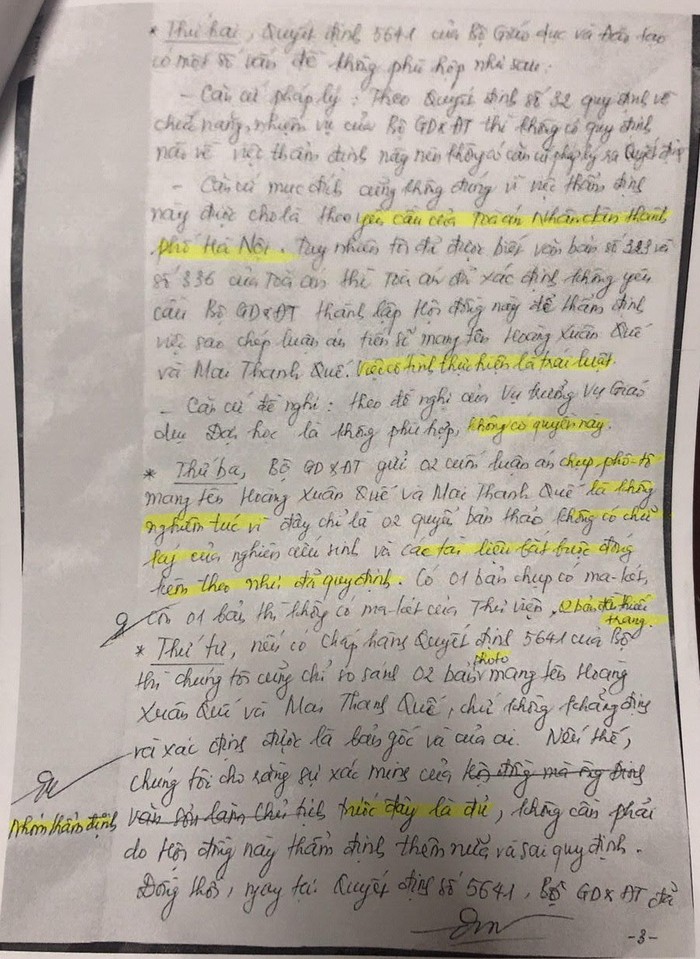 * Thứ hai, Quyết định 5641 của Bộ Giáo dục và Đào tạo
có một số vấn đề không phù hợp như sau:
- Căn cứ pháp lý: Theo Quyết định số 32 quy định về
chức năng, nhiệm vụ của Bộ GD&ĐT thì không có quy định
nào về việc thẩm định này nên không có căn cứ pháp lý ra Quyết định
- Căn cứ mục đích cũng không đúng vì việc thẩm định
này được cho là theo yêu cầu của Toà án Nhân dân thành
phố Hà Nội. Tuy nhiên tôi đã được biết văn bản số và
số 336 của Toà án thì Toà án đã xác định không yêu
cầu Bộ GD&ĐT thành lập Hội đồng này để thẩm định
việc sao chép luận án tiến sĩ mang tên Hoàng Xuân Quế
và Mai Thanh Quế. Việc cố tình thực hiện là trái luật.
- Căn cứ đề nghị: theo đề nghị của Vụ trưởng Vụ Giáo
dục Đại học là không phù hợp, không có quyền này.
* Thứ ba, Bộ GD&ĐT gửi 02 cuốn luận án chụp phô-tô
mang tên Hoàng Xuân Quế và Mai Thanh Quế là không
nghiêm túc vì đây chỉ là 02 quyển bản thảo không có chữ
ký của nghiên cứu sinh và các tài liệu bắt buộc đóng
kèm theo như đã quy định. Có 01 bản chụp có ma-két,
còn 01 bản thì không có ma-két của Thư viện, 2 bản đều thiếu
trang.
* Thứ tư, nếu có chấp hành Quyết định 5641 của Bộ
thì chúng tôi cũng chỉ so sánh 02 bản photo mang tên Hoàng
Xuân Quế và Mai Thanh Quế, chứ không khẳng định
và xác định được là bản gốc và của ai. Nếu thế,
chúng tôi cho rằng sự xác minh của
Nhóm thẩm định trước đây là đủ, không cần phải
do Hội đồng này thẩm định thêm nữa và sai quy định.
Đồng thời, ngay tại Quyết định số 5641, Bộ GD&ĐT đã
-3-